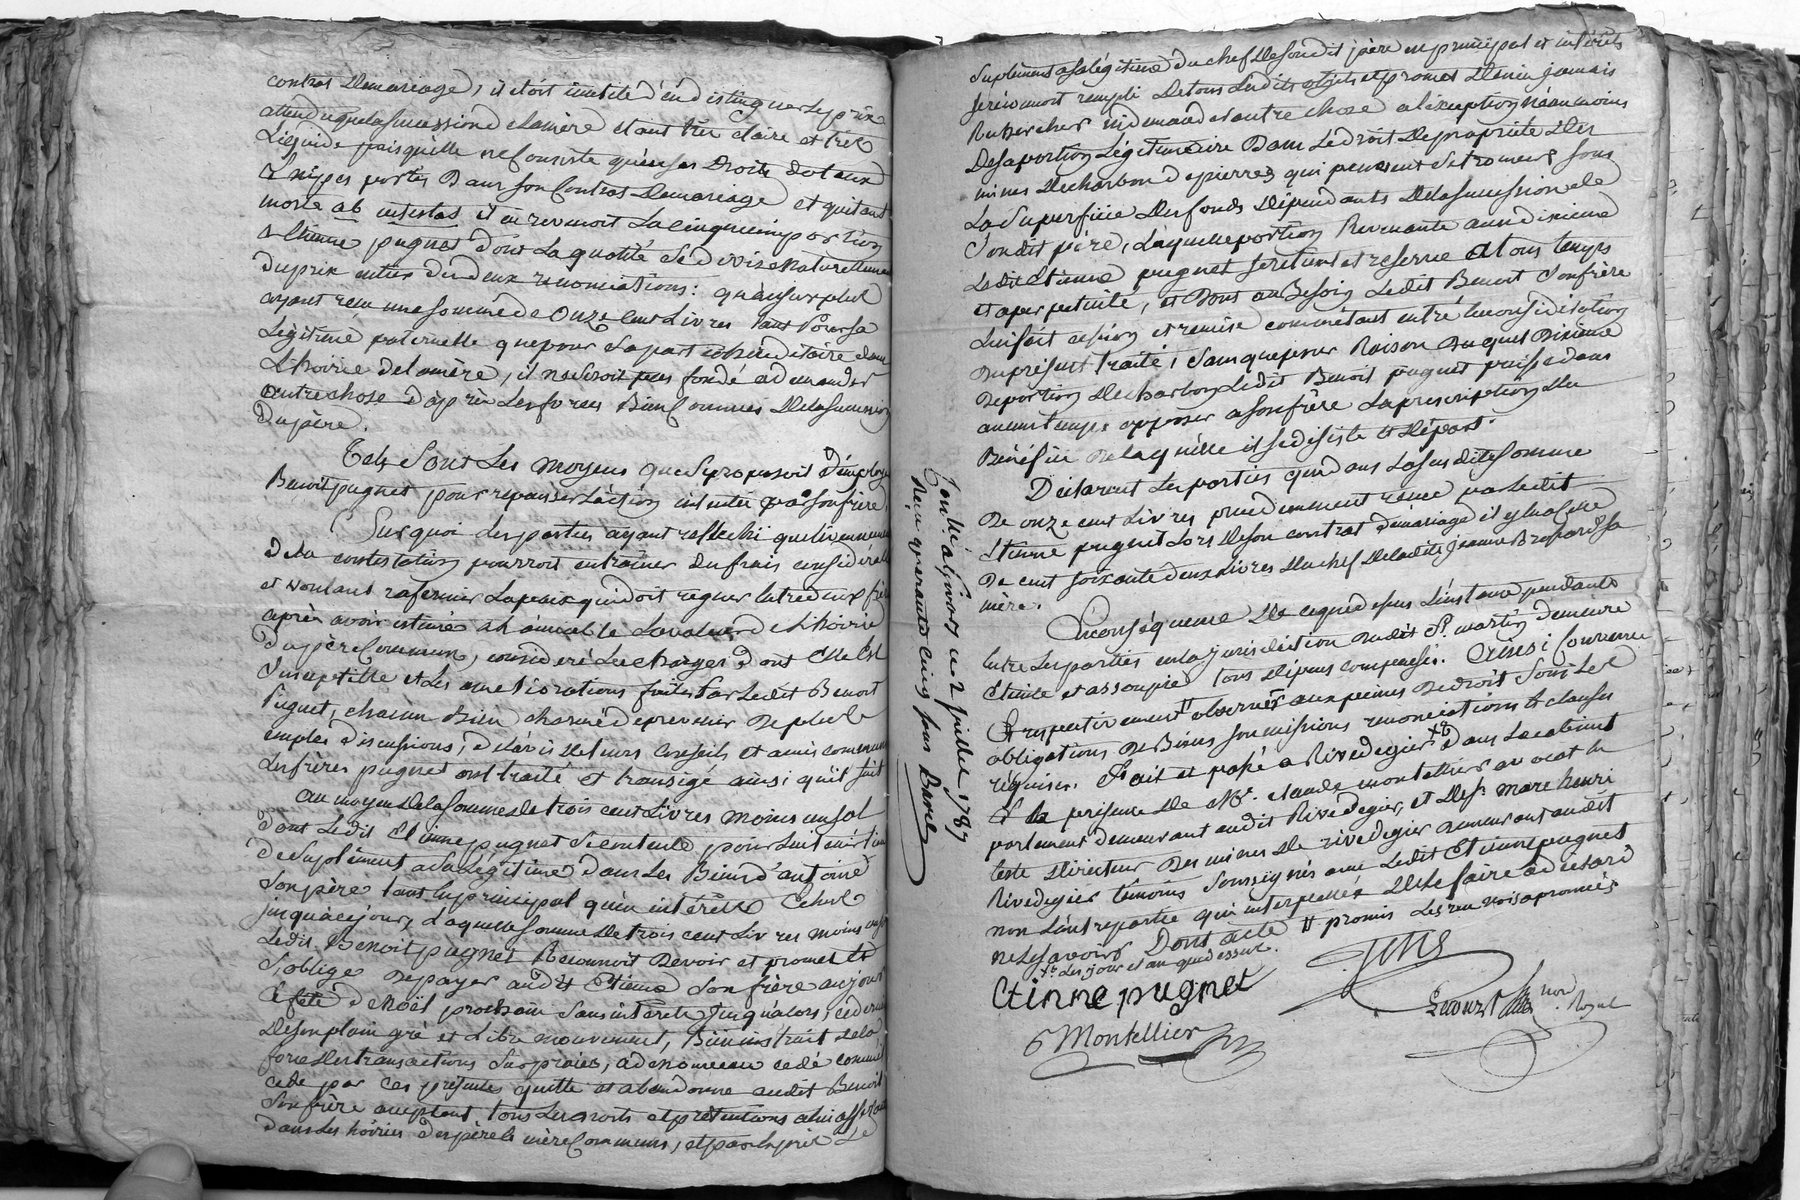 contrat demariage, il étoit inutile d'en distinguer le prix
attendu que la succession de la mère étant très claire et très
liquide puis quelle ne Consiste qu'en ses Droits dotaux
& nipes portés Dans son Contrat Demariage et qu'étant
morte ab intestat il en revenoit La cinquieme portion
a Etienne pugnet dont La quotité se divise naturellement
du prix entier des deux renonciations: qu'au surplus
ayant reçu une somme de Onze Cent Livres tant Pour sa
Légitime paternelle que pour sa part héréditaire dans
L'hoirie de la mère, il ne seroit pas fondé a demander
autre chose d'après Les forces Bien Connues de la succession
Du père.
Tels Sont Les moyens que Se proposoit d'employer
Benoit pugnet pour repousser L'action intentée par son frère.
Sur quoi Les parties ayant reflechi que l'évenement
de la contestation pourroit entrainer des frais considérables
et voulant rafermir La paix qui doit regner Entre deux frères
après avoir estimé a l'amiable La valeur de L'hoirie
du père Commun, consideré Les charges dont Elle Est
Susceptible et Les ameliorations faites Par Ledit Benoit
Puguet, chacun Bien charmé de prevenir De plus
amples discussions, de l'avis de leurs conseils et amis communs
Les frères pugnet ont traité et transigé ainsi qu'il suit
au moyen de la somme de trois cent Livres moins un sol
dont Ledit Etienne pugnet se contente pour Lui tenir Lieu
de Suplément a sa Légitime dans Les Biens d'antoine
Son père tant En principal qu'en intérêts Echus
jusqu'à ce jour, Laquelle somme de trois cent Livres moins un sol
Ledit Benoit pugnet Reconnoit Devoir et promet et
S'oblige De payer audit Etienne Son frère au jour
& fête de Noël prochain Sans intérêts Jusqu'alors, Ledernier
De son plain gré et Libre mouvement, Bien instruit de la
force Des transactions Sur procès, a de nouveau cedé comme il
cede par ces présentes quitte et abandonne audit Benoit
Son frère acceptant tous Les droits et prétentions a lui afférants
dans Les hoiries des père & mère Communs, et par exprès Le
Suplément a sa légitime du chef de son dit père en principal et intérêts
se réconnoit rempli De tous Lesdits objets et promet de n'en jamais
Rechercher ni demander autre chose a l'exception néanmoins
De sa portion Légitimaire Dans Le droit De propriété Des
mines de charbon de pierres qui peuvent Se trouver sous
La Superficie Des fonds Dépendants De la succession de
Son dit père, Laquelle portion Revenante au un dixieme
Ledit Etienne pugnet se retient et reserve a tous temps
et a perpetuité, et Dont au Besoin Ledit Benoit Son frère
Lui fait cession et remise comme étant entré En considération
Du présent traité, Sans que pour Raison Du quel Dixième
De portion De charbon Ledit Benoit puguet puisse dans
aucun temps opposer a son frère La prescription Du
Bénéfice De laquelle il se desiste et Départ.
Déclarent Les parties que dans La susdite somme
De onze cent Livres précédemment reçue par Ledit
Etienne pugnet Lors De son contrat de mariage il y en a celle
De cent soixante deux Livres Du chef de ladite Jeanne Brossard sa
mère.
En conséquence De ce que dessus L'instance pendante
Entre Les parties en la jurisdiction Dudit St. martin demeure
Eteinte et assoupie tous dépens compensés. Ainsi Convenu
& respectivement # observer aux peines De droit Sous Les
obligations De Biens soumissions renonciations & clauses
réquises. Fait et passé a Rivedegier x° Dans Le cabinet
& La présence De Mr. claude montellier avocat En
parlement demeurant audit Rivedegier, et De Sr. marc henri
teste Directeur Des mines De rivedegier demeurant audit
Rivedegier témoins soussignés avec Ledit Etienne pugnet
non L'autre partie qui interpellée De le faire a déclaré
ne Le savoir Dont acte # promis Les renvois aprouvés
x° Les jour et an que dessus.
Etinne pugnet
Montellier
Royal
Contrôlé a Givors ce 2 juillet 1787
Reçu quarante cinq sous Barre